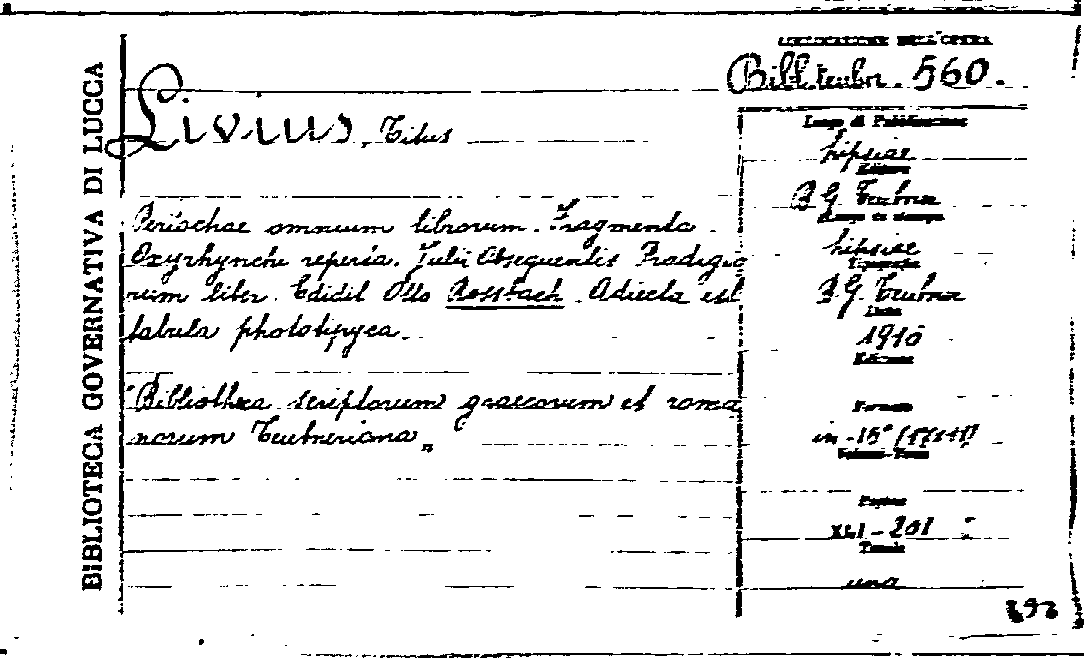 BIBLIOTECA GOVERNATIVA DI LUCCA
COLLOCAZIONE DELL'OPERA
Bibl. teubn. 560.
Livius, Titus
Periochae omnium librorum. Fragmenta
Oxyrhynchi reperta. Julii Obsequentis Prodigio
rum liber. Edidit Otto Rossbach. Adiecta est
tabula phototypica.
"Bibliotheca scriptorum graecorum et roma
norum Teubneriana"
Luogo di Pubblicazione
Lipsiae
Editore
B G Teubner
Luogo di stampa
Lipsiae
Tipografia
B. G. Teubner
1910
Edizione
Formato
in-16°
Pagine
XLI - 201
Tavole
una